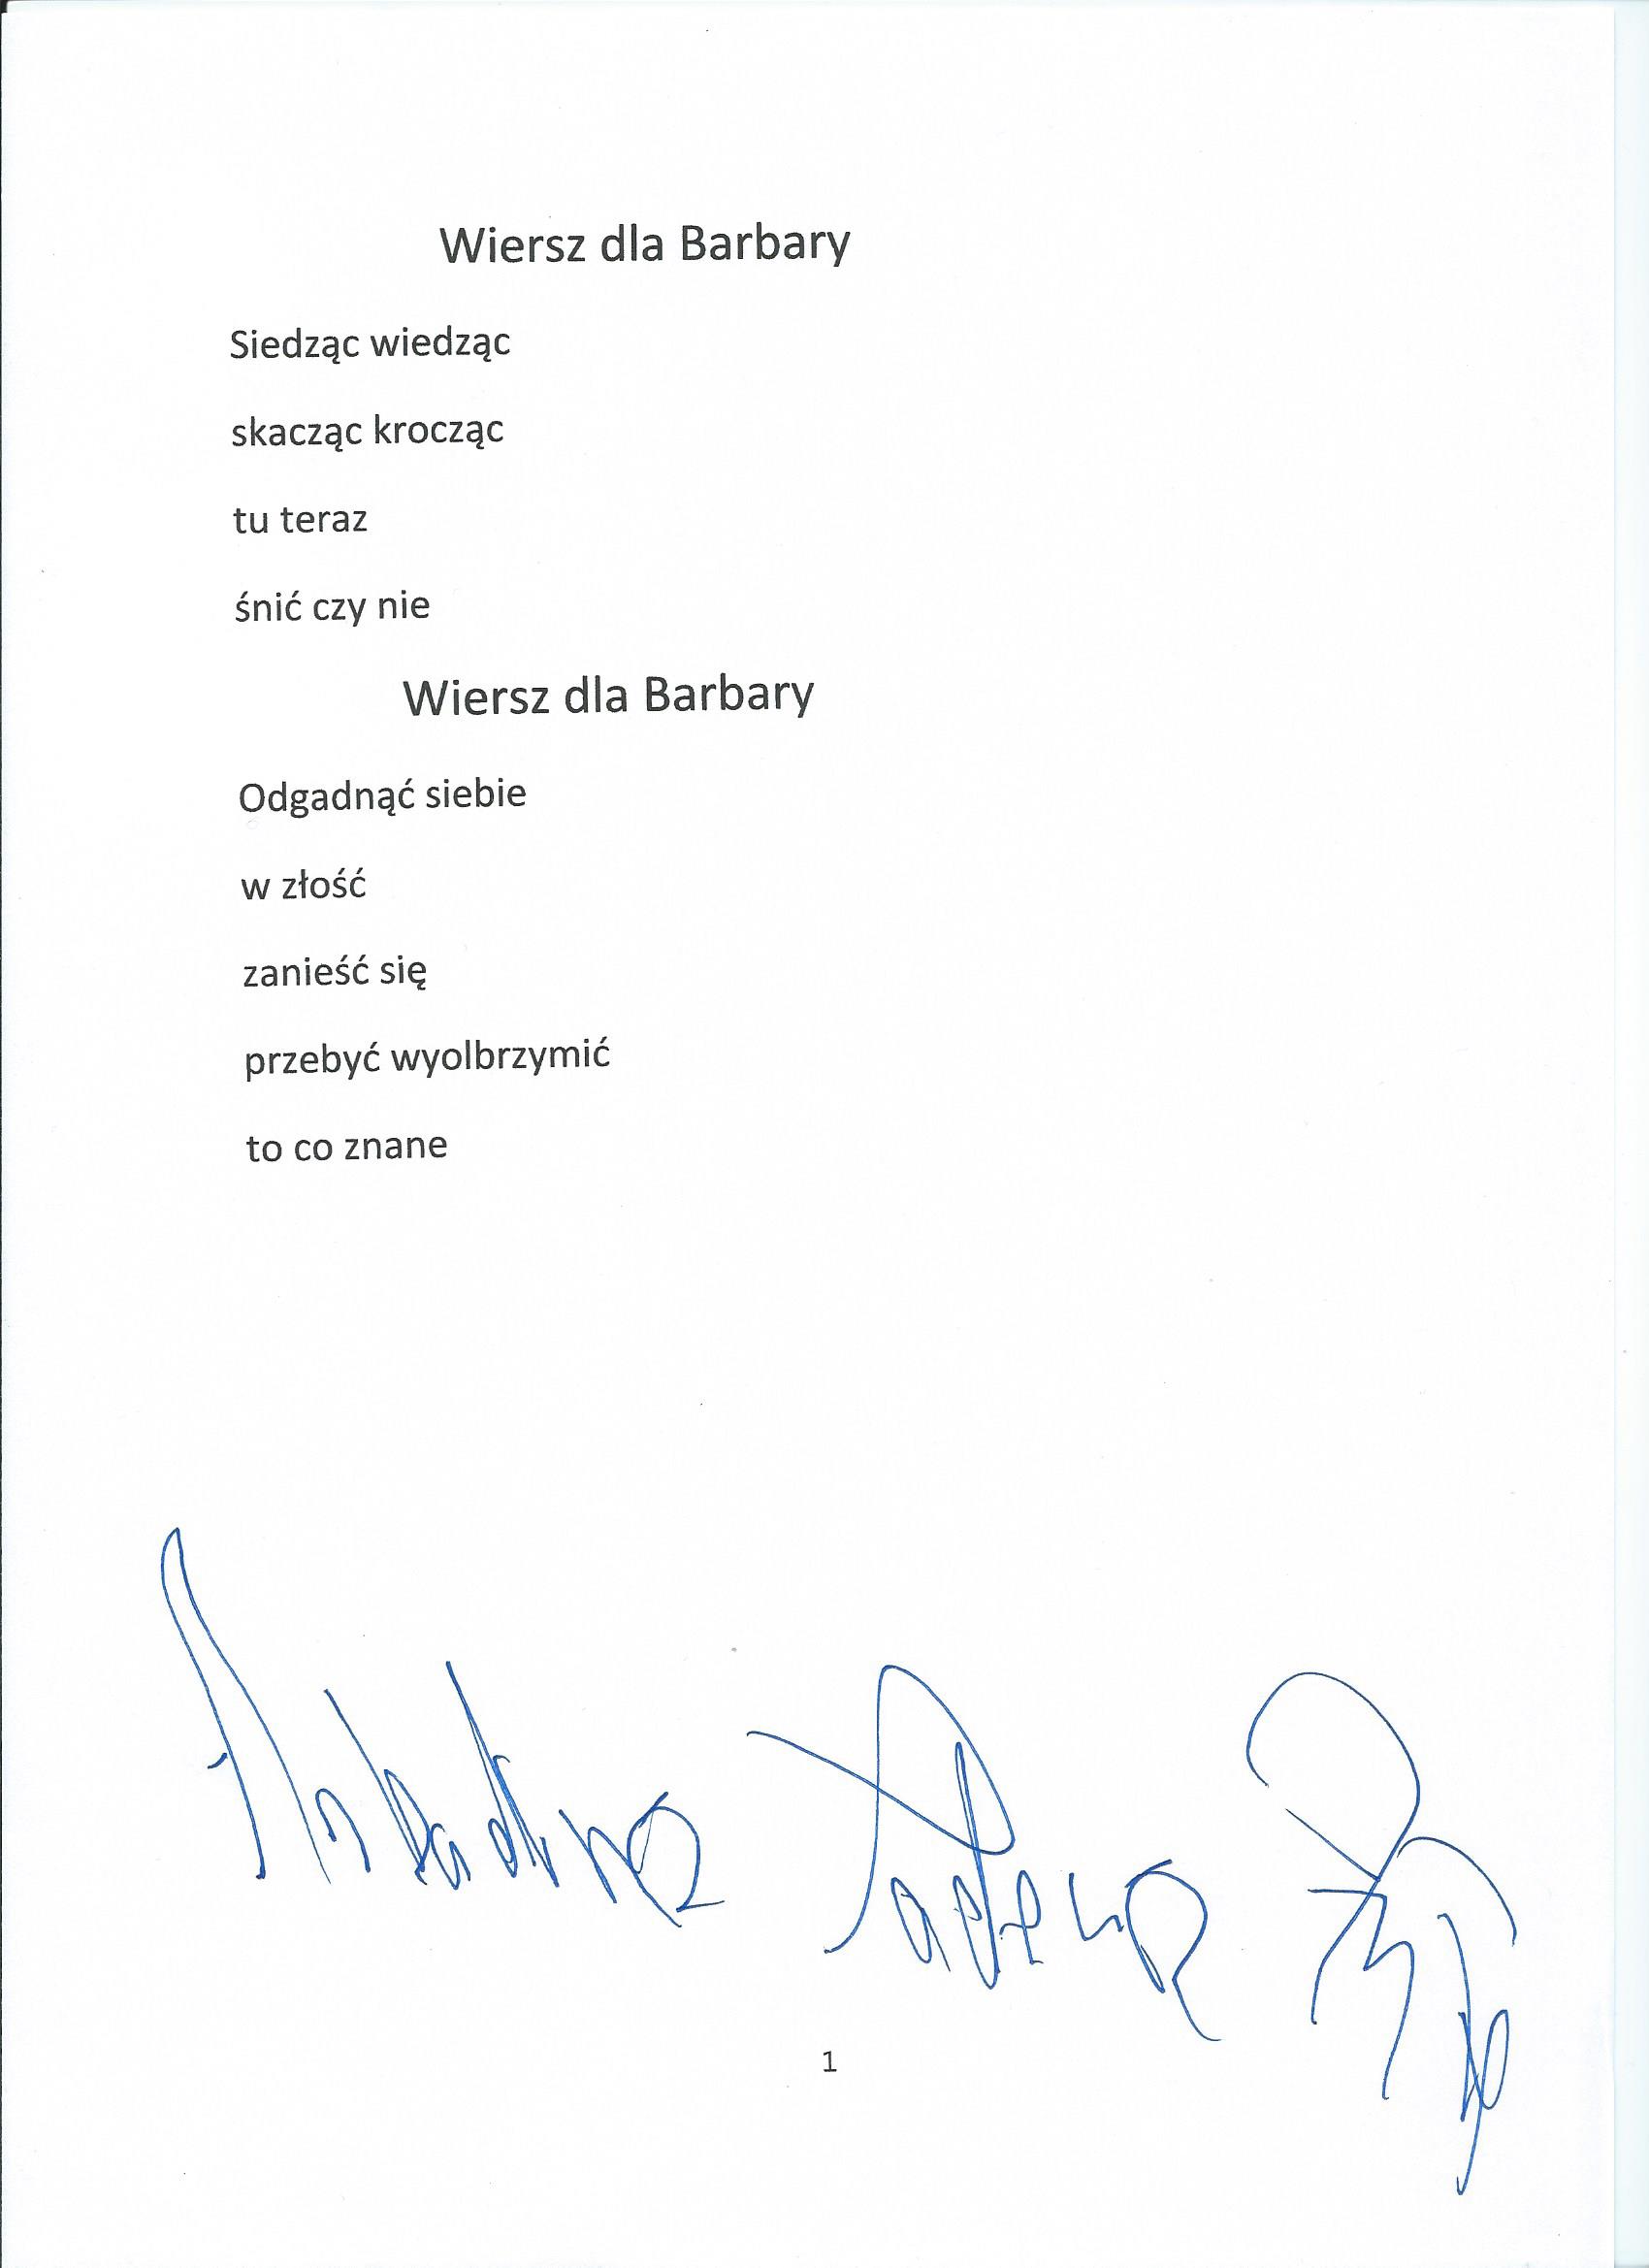 Wiersz dla Barbary
Siedząc wiedząc
skacząc krocząc
tu teraz
śnić czy nie
Wiersz dla Barbary
Odgadnąć siebie
w złość
zanieść się
przebyć wyolbrzymić
to co znane
1